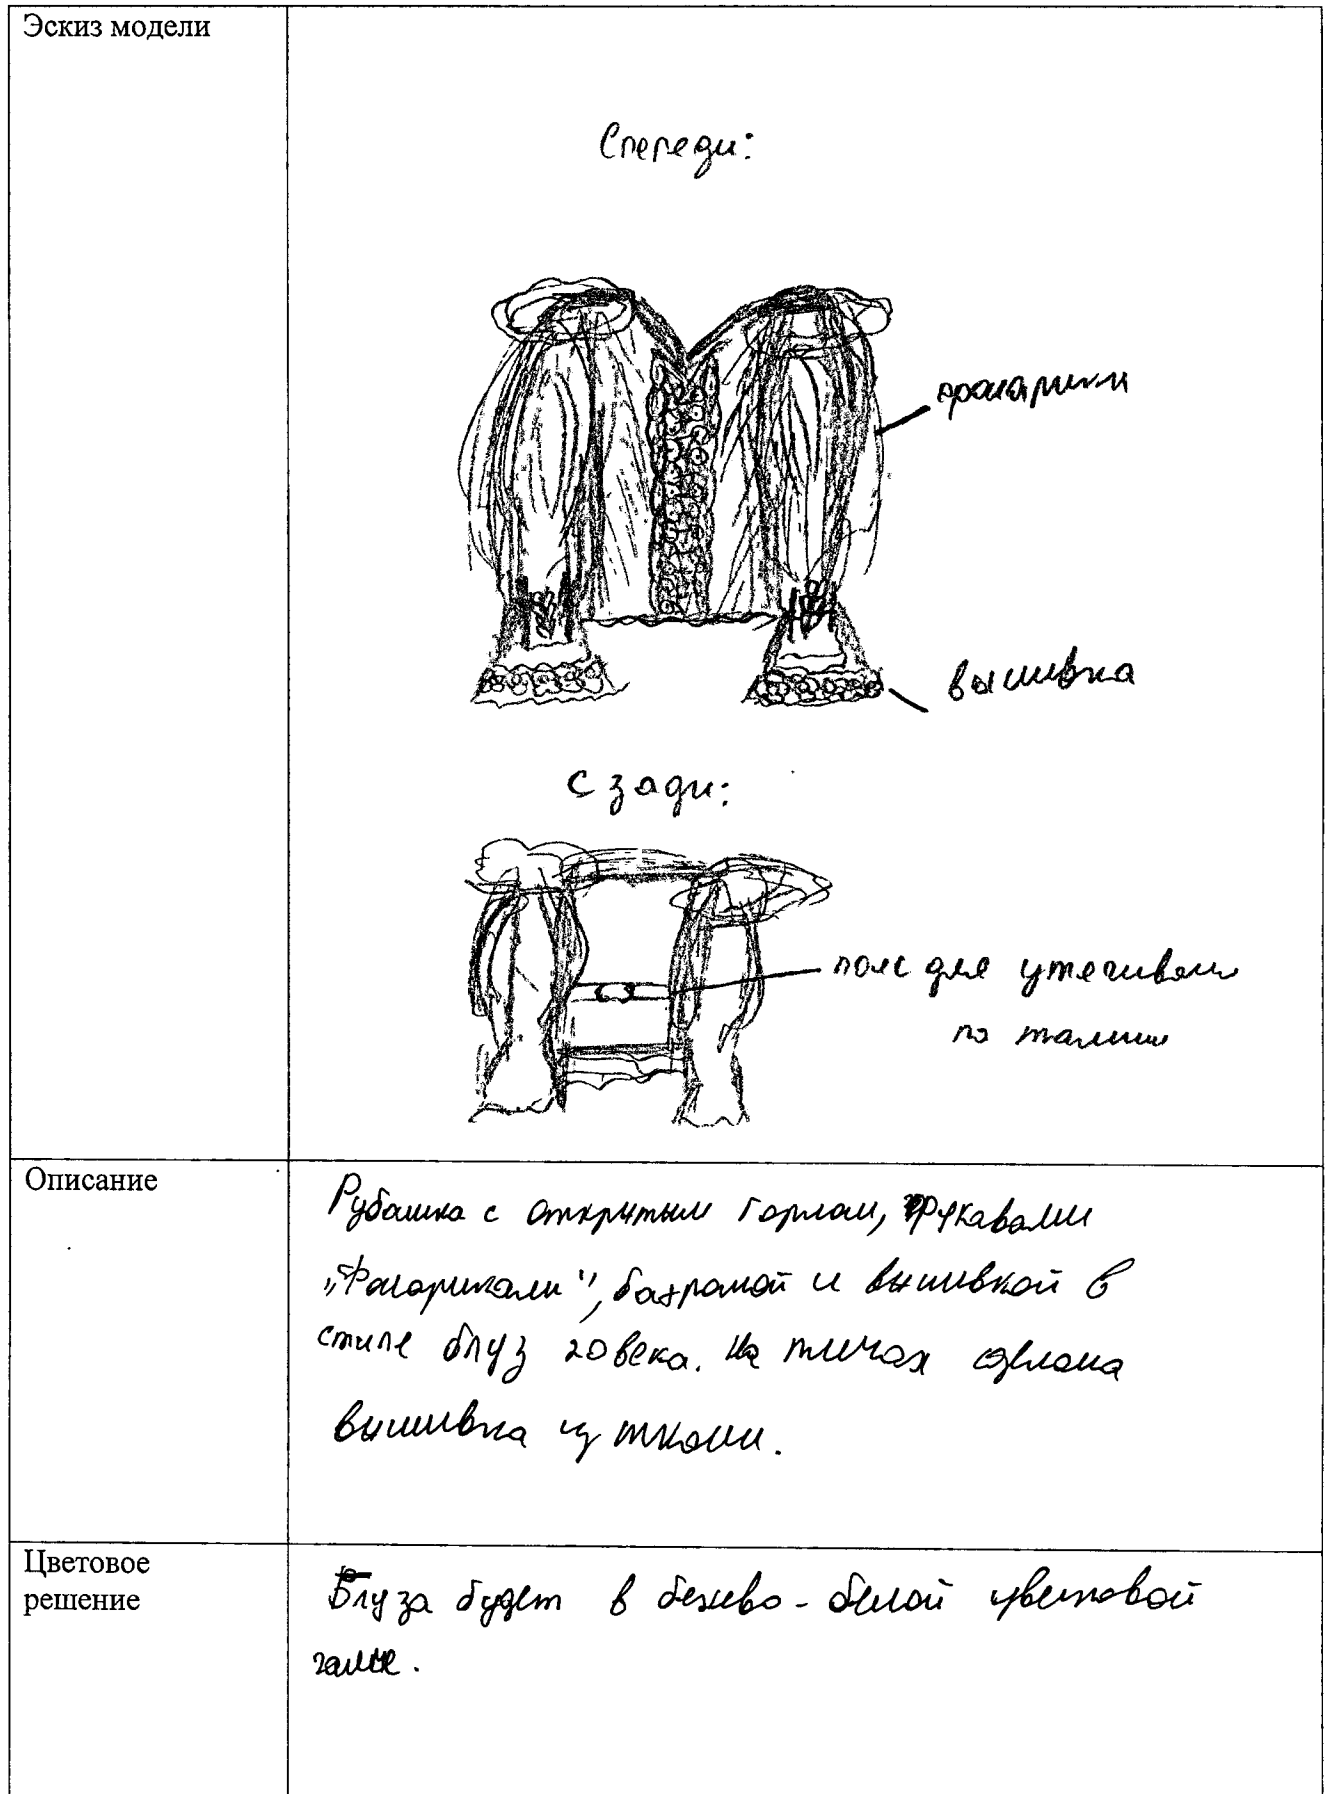 Эскиз модели
Спереди:
фонарики
вышивка
С зади:
пояс для утягивани
по талии
Описание
Рубашка с открытым горлом, рукавами
„Фонариками", бахромой и вышивкой в
стиле блуз 20 века. На плечах сделана
вышивка из ткани.
Цветовое
решение
Блуза будет в бежево-белой цветовой
гамме.